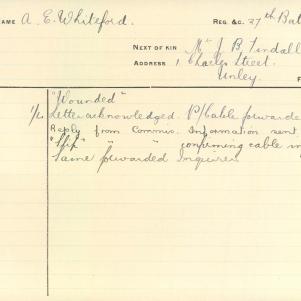 NAME A. E. Whiteford. REG. &C. 27th Bat
NEXT OF KIN Mr J. B. Tindall
ADDRESS 1 Charles Street.
Unley.
"Wounded"
Letter acknowledged. P/Cable forwarde
Reply from Commrs. Information sent
" " confirming cable
Same forwarded Inquirer